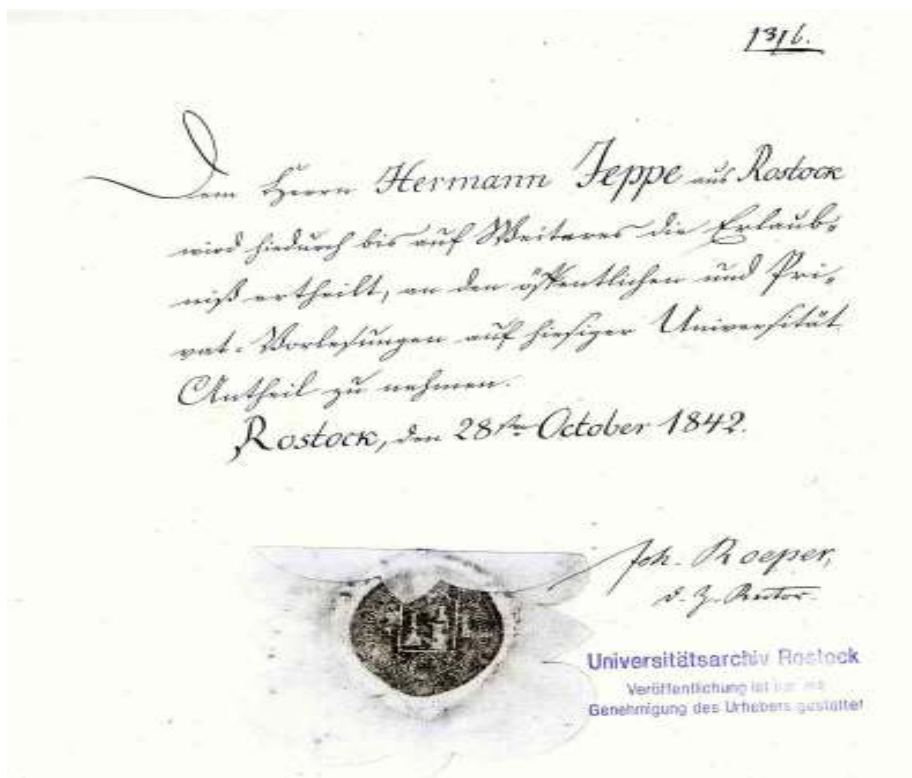 1316.
Dem Herrn Hermann Jeppe aus Rostock
wird hiedurch bis auf Weiteres die Erlaub-
niß ertheilt, an den öffentlichen und Pri-
vat-Vorlesungen auf hiesiger Universität
Antheil zu nehmen.
Rostock, den 28sten October 1842.
Joh. Roeper,
d. Z. Rector.
Universitätsarchiv Rostock
Veröffentlichung ist nur mit
Genehmigung des Urhebers gestattet